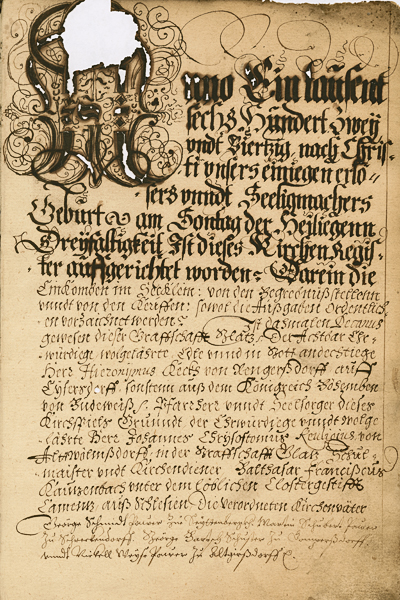 Anno Ein tausent
sechs Hundert Zweÿ
vndt Viertzig, nach Chris-
ti vnsers einiegen erlo-
sers vnndt Seeligmachers
Geburt am Sontag der Heiliegenn
Dreyfaltigkeit Ist dieses Kirchen Regis-
ter auffgerichtet worden. Darein die
Einkomben im : von den
vnndt von den Teuffen: sowol die Außgaben Ordentlich-
en vorzaichnet werden. Ist damalen Decanus
gewesen dieser Graffschafft Glatz, Der Achtbar Ehr-
würdige wolgelahrte, Edle vnnd in Gott andechtiege
Herr Hieronymus Keck von auff
Eysersdorff, sonsten auß dem Königreich Böhemben
von Budeweiß, Pfarrherr vnndt Seelsorger dieses
Kirchspiels Grünndt der Ehrwürdige vnndt wolge-
lahrte Herr Johannes Chrysostomus Religius von
Altwilmßdorff, in der Graffschafft Glatz, Schul-
maister vndt Kirchendiener Balthasar Franciscus
vnter dem Löblichen Closterstifft
Camentz auß Schlesien. Die verordneten Kirchenväter
George Schmidt Pawer Zu Martin Schubert Pawer
Zu Schreckendorff, George Schuster Zu
vnndt Nickell Weyß Pawer Zu Altgirßdorff